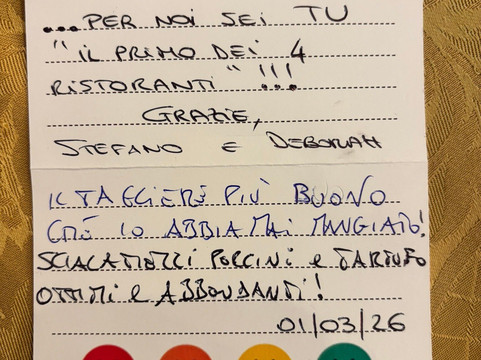 ...PER NOI SEI TU
"IL PRIMO DEI 4
RISTORANTI" !!!
GRAZIE,
STEFANO E DEBORAH
IL TAGLIERE PIÙ BUONO
CHE IO ABBIA MAI MANGIATO!
SCIALATIELLI PORCINI e TARTUFO
OTTIMI e ABBONDANTI!
01/03/26